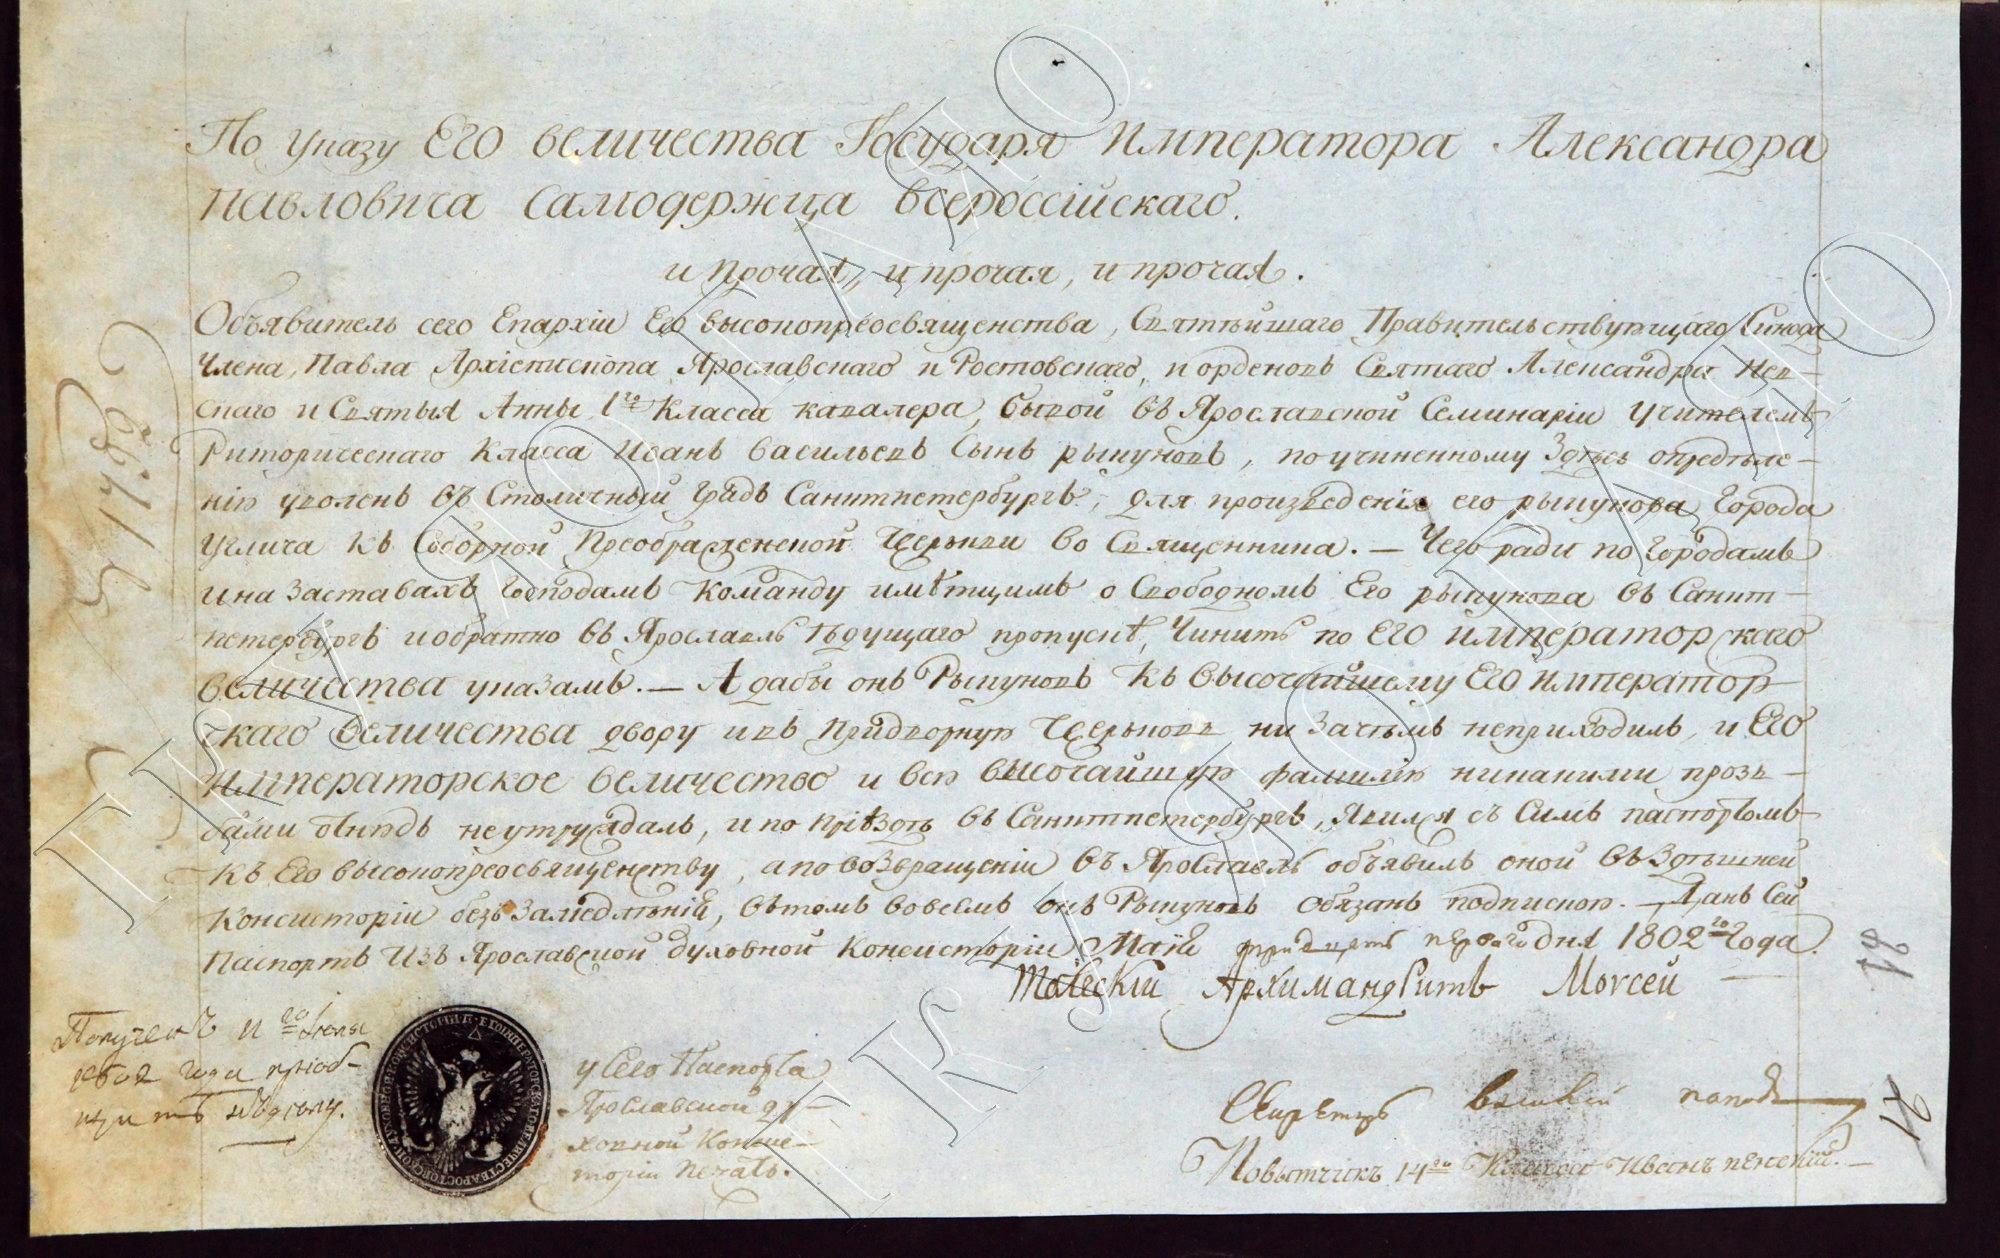 По указу Его величества Государя Императора Александра
Павловича Самодержца всероссійскаго.
и прочая, и прочая, и прочая.
Объявитель сего Епархіи Его высокопреосвященства, Святѣйшаго Правительствующаго Синода
члена, Павла Архіепископа Ярославскаго и Ростовскаго, и орденовъ Святаго Александра Нев-
скаго и Святыя Анны 1го Класса кавалера, бывой въ Ярославской Семинаріи Учителемъ
Риторическаго Класса Иванъ Васильевъ Сынъ рыкуновъ, по учиненному здѣсь опредѣле-
нію уволенъ въ Столичный градъ Санктпетербургъ, для произведенія его рыкунова Города
Углича къ Соборной Преображенской Церькви во Священника. — Чего ради по городамъ
и на заставахъ Господамъ Команду имѣющимъ о Свободномъ Его рыкунова въ Санкт-
петербургъ и обратно въ Ярославль ѣдущаго пропускѣ, Чинить по ЕГО императорскаго
величества указамъ. — А дабы онъ Рыкуновъ Къ высочайшему ЕГО император-
скаго величества двору и въ Придворную Церьковь ни зачѣмъ неприходилъ, и ЕГО
императорское величество и всю высочайшую фамилію никакими прозь-
бами отнюдь не утруждалъ, и по пріѣздѣ въ Санктпетербургъ, явился съ Симъ паспортомъ
къ Его высокопреосвященству, а по возвращеніи въ Ярославль объявилъ оной въ Здѣшней
Консисторіи безъ замедлѣнія, въ томъ во всемъ онъ Рыкуновъ обязанъ подпискою. — Данъ Сей
Паспортъ Изъ Ярославской духовной Консисторіи Маія тридцать перваго дня 1802го Года.
Толгскій Архимандритъ Моѵсей
Полученъ 11го Іюня
1802 года пріоб-
щить къ дѣлу.
у Сего Паспорта
Ярославской ду-
ховной Консис-
торіи Печать.
Секретарь
Повытчикъ 14го Класса Иванъ
1788
18
ГКУ ЯО ГАЯО
ГКУ ЯО ГАЯО